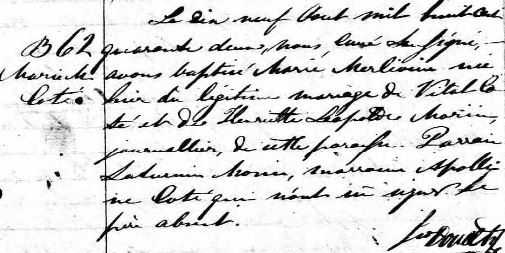 Le dix neuf Aout mil huit cent
B 62 quarante deux, nous, curé soussigné,
Marie M. avons baptisé Marie Merlina née
Coté. hier du légitime mariage de Vital Co
té et de Henriette Morin,
journallier, de cette paroisse. Parrain
Saturnin Morin, marraine Apolli
ne Coté qui n'ont su signer. Le
père absent.